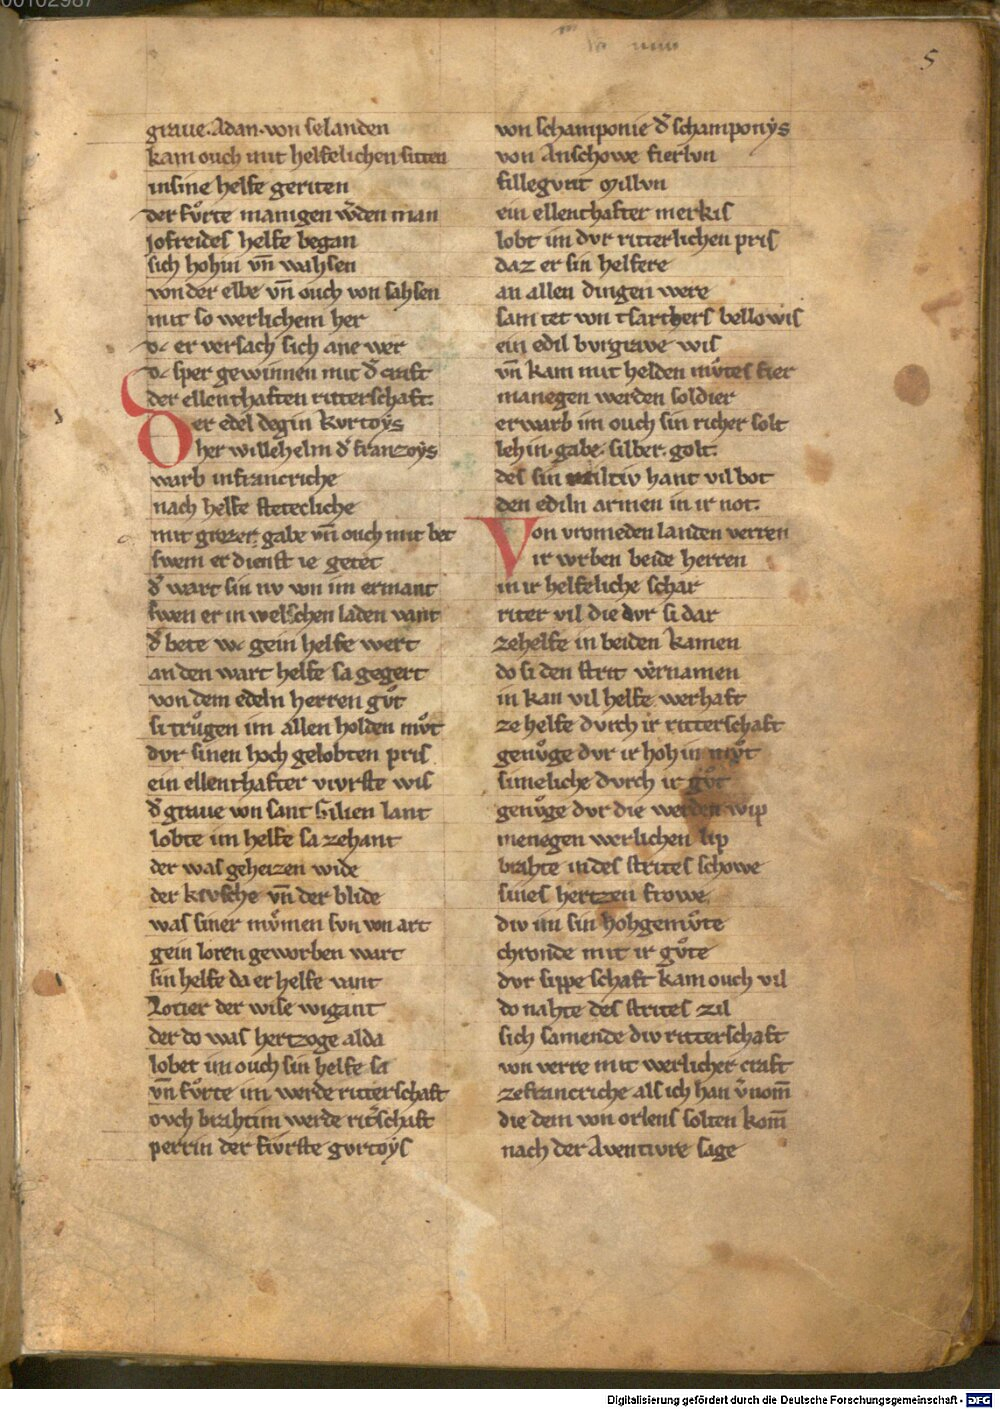 5
graue·Adan·von selanden
kam ouch mit helfelichen sitten
in sine helfe geriten
der fuͦrte manigen w̄den man
jofreides helfe began
sich hohin vn̄ wahsen
von der elbe vn̄ ouch von sahsen
mit so werlichem her
er versach sich ane wer
sper gewinnen mit d̄ craft
der ellenthaften ritterschaft.
Der edel degin kvrtoẏs
her willehelm d̄ franzoẏs
warb in francriche
nach helfe stetecliche
mit grozer gabe vn̄ ouch mit bet
swem er dienst ie getet
d̄ wart sin nv von im ermant
swen er in welschen lāden vant
d̄ bete w gein helfe wert
an den wart helfe sa gegert
von dem edeln herren guͦt
si truͦgen im allen holden muͦt
dvr sinen hoch gelobten pris
ein ellenthafter vivrste wis
d̄ graue von sant Gilien lant
lobte im helfe sa zehant
der was geheizen wide
der kivsche vn̄ der blide
was siner muͦmen svn von art
gein loren geworben wart
sin helfe da er helfe vant
Lotier der wise wigant
der do was hertzoge alda
lobet im ouch sin helfe sa
vn̄ fuͦrte im werde ritterschaft
ovch brahtim werde rit̄schaft
perrin der fivrste gvrtoẏs
von schamponie d̄ schamponẏs
von Anschowe fierlvn
fillegvnt Millvn
ein ellenthafter merkis
lobt im dvr ritterlichen pris
daz er sin helfere
an allen dingen were
sam tet von tsarthers bellowis
ein edil bvrgrave wis
vn̄ kam mit helden muͦtes fier
manegen werden soldier
erwarb im ouch sin richer solt
lehin·gabe·silber·golt·
des sin miltiv hant vil bot
den ediln armen in ir not·
Von vromeden landen verren
ir wrben beide herren
in ir helfeliche schar
riter vil die dvr si dar
zehelfe in beiden kamen
do si den strit vernamen
in kan vil helfe werhaft
ze helfe dvrch ir ritterschaft
genuͦge dvr ir hohin muͦt
simeliche dvrch ir guͦt
genuͦge dvr die werden wip
menegen werlichen lip
brahte in des strites schowe
sines hertzen frowe
div im sin hohgemuͦte
chronde mit ir guͦte
dvr sippe schaft kam ouch vil
do nahte des strites zil
sich samende div ritterschaft
von verre mit werlicher craft
ze francriche als ich han v̄nom̄
die dem von orlens solten kom̄
nach der Aventivre sage
Digitalisierung gefördert durch die Deutsche Forschungsgemeinschaft - DFG